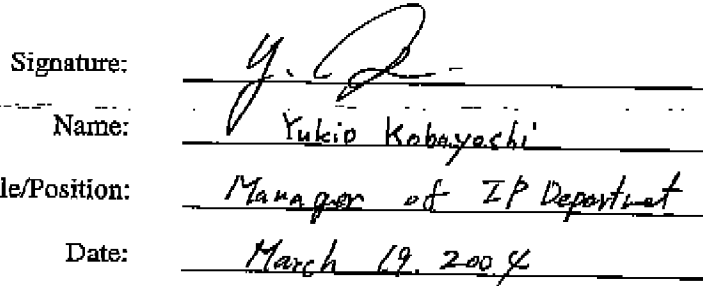 Signature:
Name: Yukio Kobayashi
le/Position: Manager of IP Departmet
Date: March 19. 2004